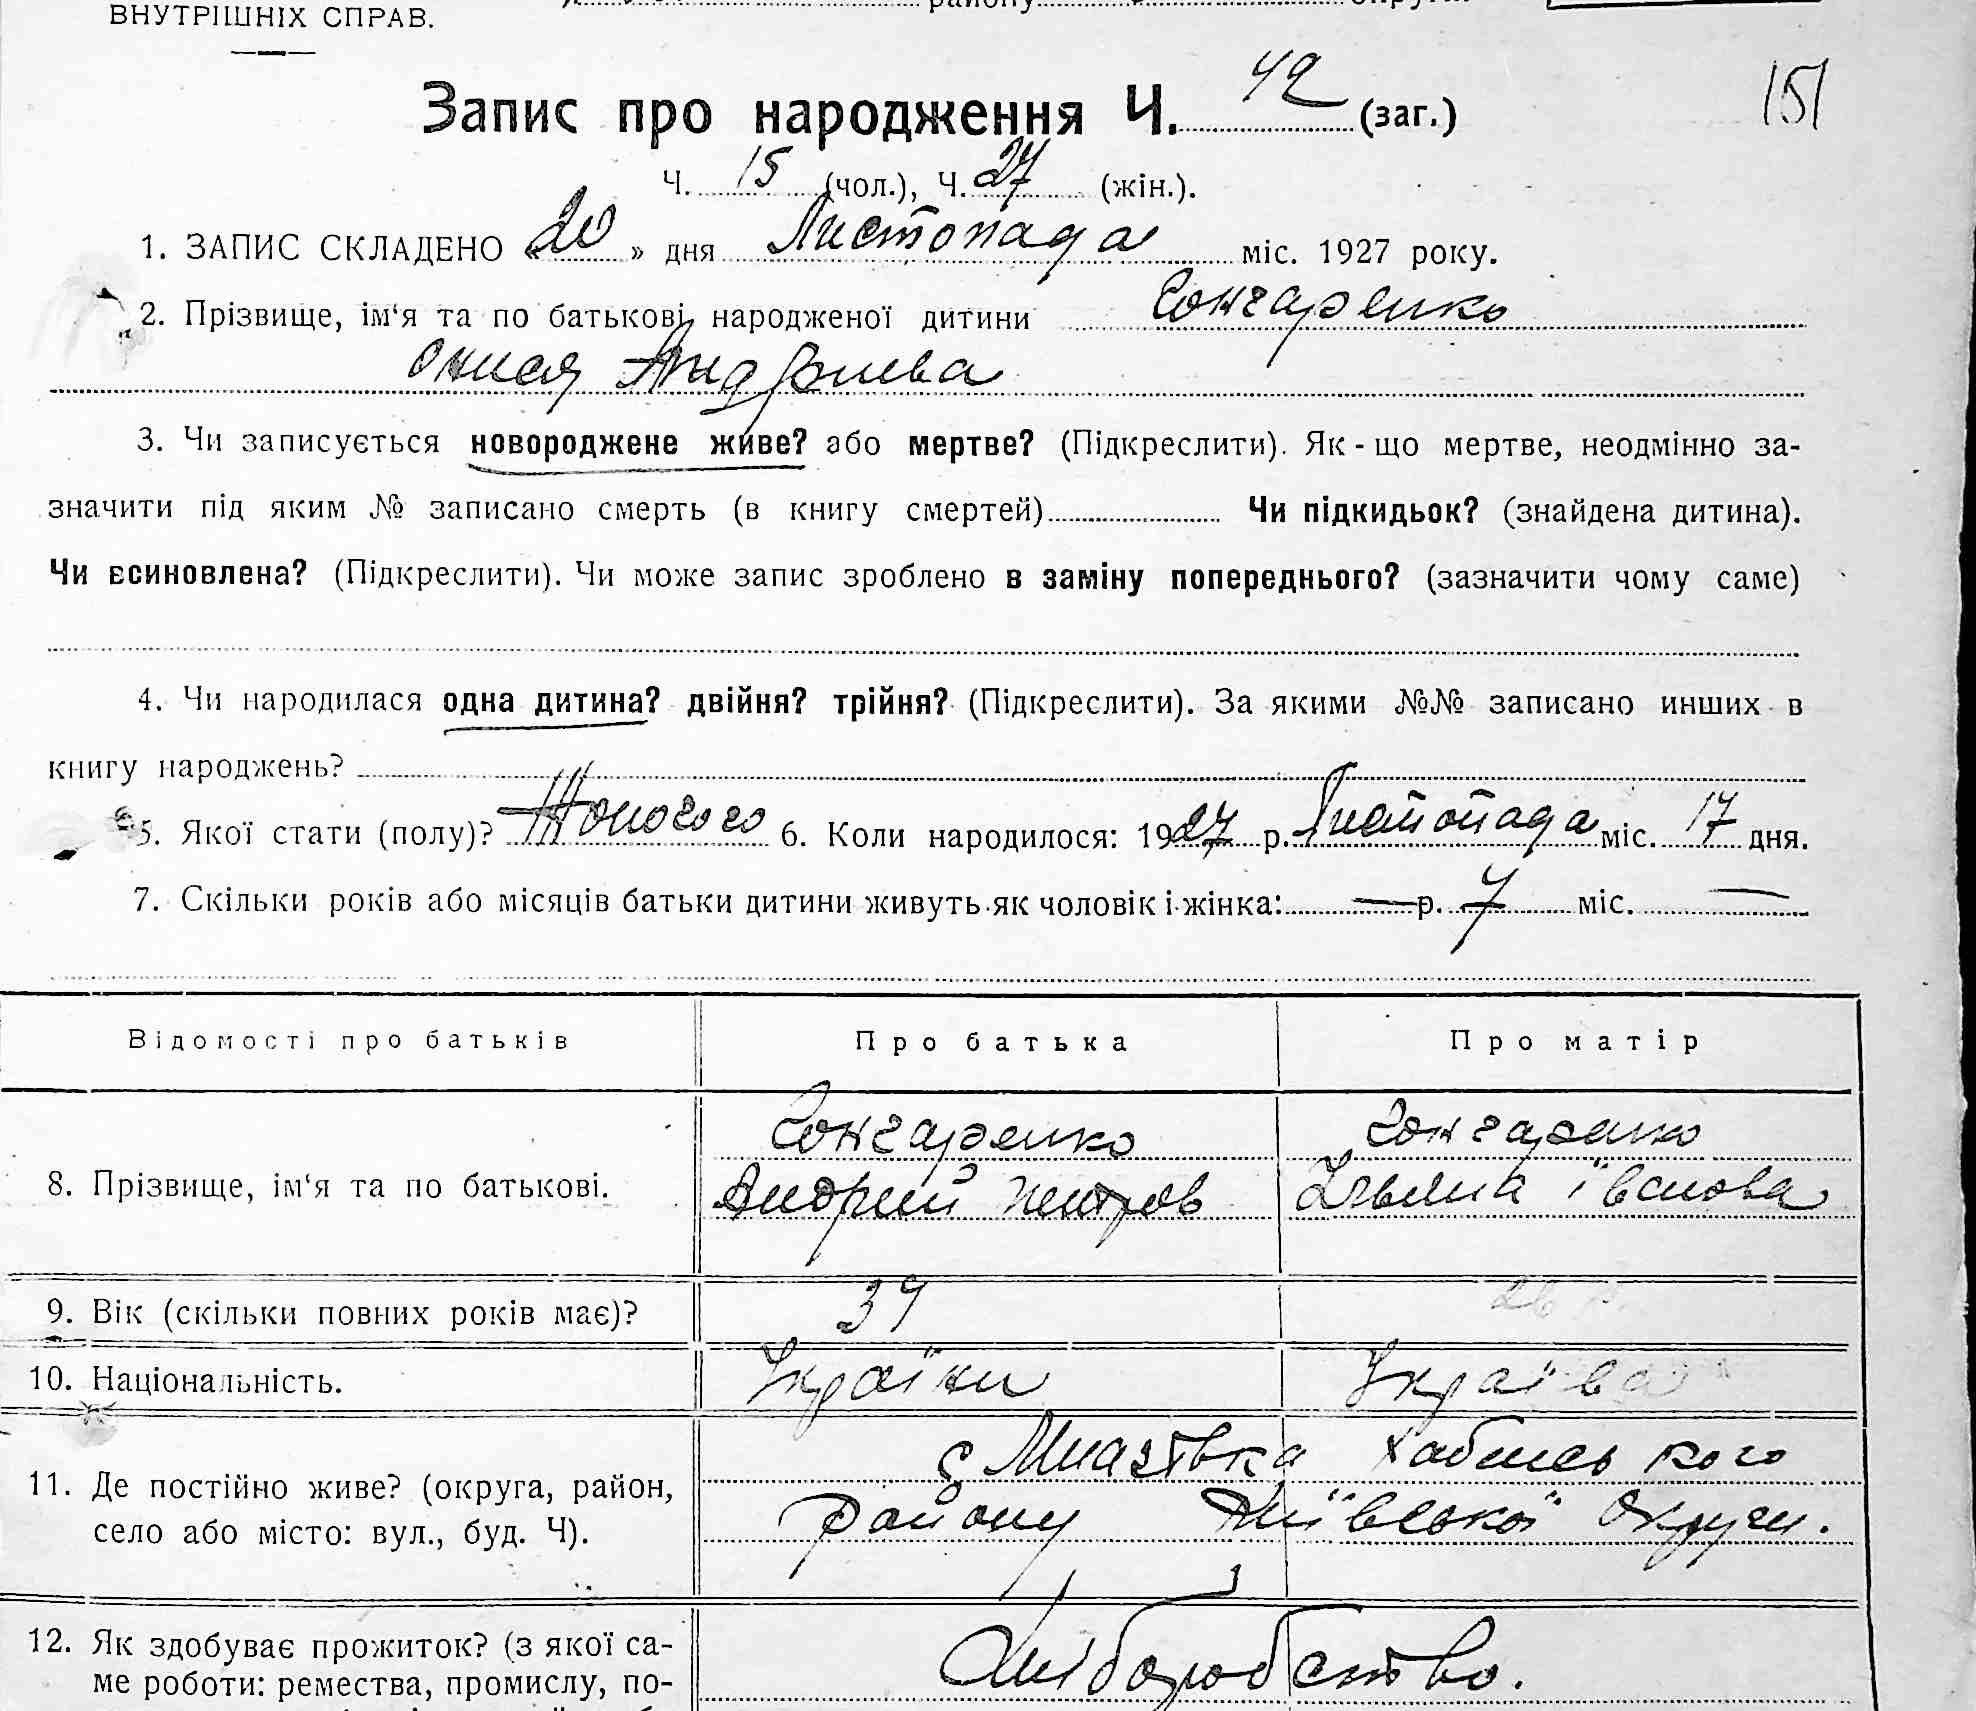 ВНУТРІШНІХ СПРАВ.
району округи
Запис про народження Ч. 42 (заг.)
151
Ч. 15 (чол.), Ч. 27 (жін.).
1. ЗАПИС СКЛАДЕНО « 20 » дня Листопада міс. 1927 року.
2. Прізвище, ім‘я та по батькові народженої дитини Гончаренко
Андриева
3. Чи записується новороджене живе? або мертве? (Підкреслити). Як - що мертве, неодмінно за-
значити під яким № записано смерть (в книгу смертей) Чи підкидьок? (знайдена дитина).
Чи всиновлена? (Підкреслити). Чи може запис зроблено в заміну попереднього? (зазначити чому саме)
4. Чи народилася одна дитина? двійня? трійня? (Підкреслити). За якими №№ записано инших в
книгу народжень?
5. Якої стати (полу)? Жоночого 6. Коли народилося: 1927 р. Листопада міс. 17 дня.
7. Скільки років або місяців батьки дитини живуть як чоловік і жінка: — р. 7 міс. —
Відомості про батьків Про батька Про матір
Гончаренко Гончаренко
8. Прізвище, ім‘я та по батькові. Андрий Петров Ульяна Іванова
9. Вік (скільки повних років має)? 34 26 р.
10. Національність. Україн
с Миазтвка Хабенського
11. Де постійно живе? (округа, район,
село або місто: вул., буд. Ч). району Київської Округи.
12. Як здобуває прожиток? (з якої са-
ме роботи: ремества, промислу, по- Хліборобство.